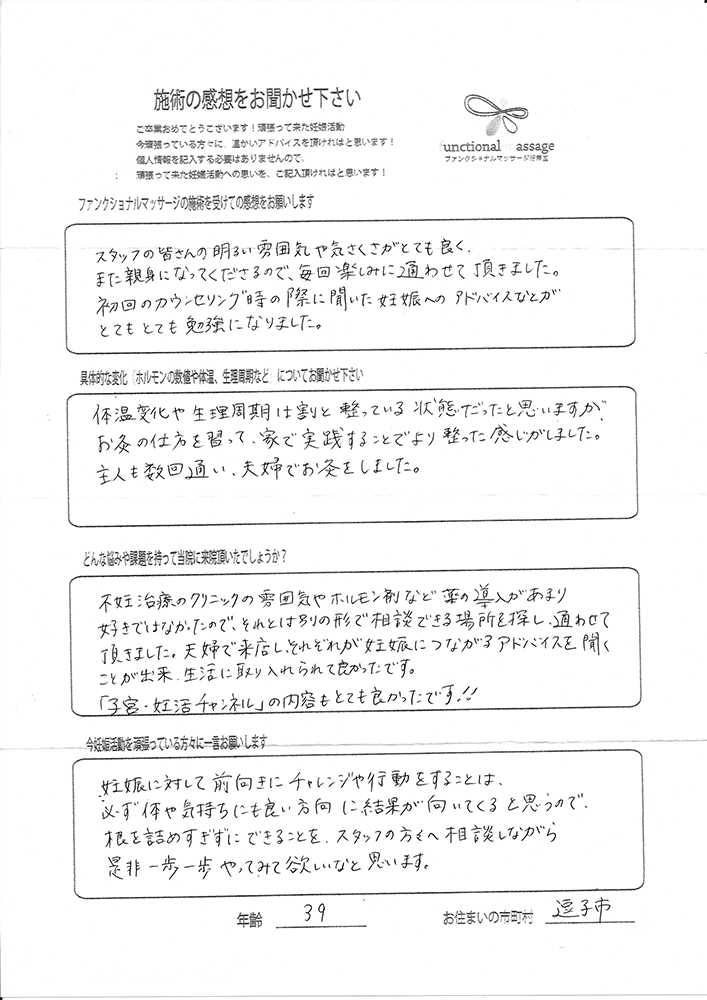 施術の感想をお聞かせ下さい
ご卒業おめでとうございます！頑張って来た妊娠活動
今頑張っている方々に、温かいアドバイスを頂ければと思います！
個人情報を記入する必要はありませんので、
： 頑張って来た妊娠活動への思いを、ご記入頂ければと思います！
functional massage
ファンクショナルマッサージ治療室
ファンクショナルマッサージの施術を受けての感想をお願いします
スタッフの皆さんの明るい雰囲気や気さくさがとても良く、
また親身になってくださるので、毎回楽しみに通わせて頂きました。
初回のカウンセリング時の際に聞いた妊娠へのアドバイスなどが
とてもとても勉強になりました。
具体的な変化（ホルモンの数値や体温、生理周期など）についてお聞かせ下さい
体温変化や生理周期は割と整っている状態だったと思いますが、
お灸の仕方を習って、家で実践することでより整った感じがしました。
主人も数回通い、夫婦でお灸をしました。
どんな悩みや課題を持って当院に来院頂いたでしょうか？
不妊治療のクリニックの雰囲気やホルモン剤など薬の導入があまり
好きではなかったので、それとは別の形で相談できる場所を探し、通わせて
頂きました。夫婦で来店し、それぞれが妊娠につながるアドバイスを聞く
ことが出来、生活に取り入れられて良かったです。
「子宮・妊活チャンネル」の内容もとても良かったです！！
今妊娠活動を頑張っている方々に一言お願いします
妊娠に対して前向きにチャレンジや行動をすることは、
必ず体や気持ちにも良い方向に結果が向いてくると思うので、
根を詰めすぎずにできることを、スタッフの方々へ相談しながら
是非一歩一歩やってみて欲しいなと思います。
年齢 39
お住まいの市町村 逗子市